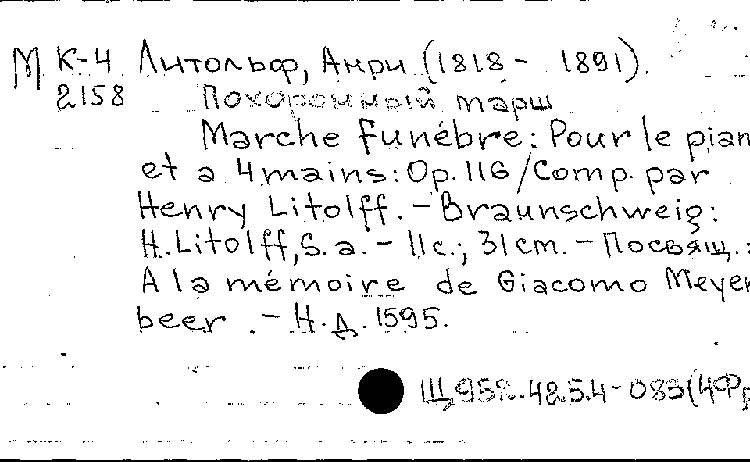 М К-4 Литольф, Анри (1818 - 1891).
2158 Похоронный марш
Marche funébre: Pour le pian
et a 4 mains: Op. 116 / Comp. par
Henry Litolff. - Braunschweig:
H. Litolff, S. a. - 11 c.; 31 cm. - Посвящ.:
A la mémoire de Giacomo Meyer
beer. - Н. д. 1595.
Щ952.425.4-083(4Фр